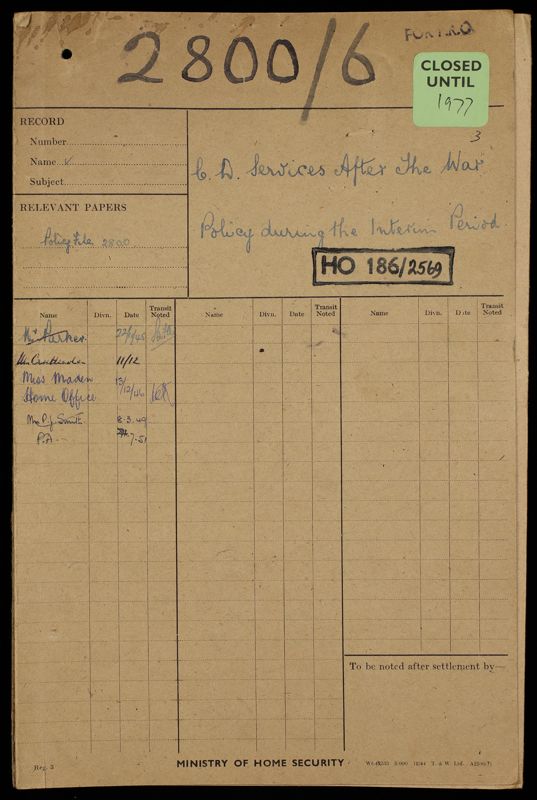 2800/6
FOR P.R.O.
CLOSED
UNTIL
1977
3
RECORD
Number
Name
Subject
C. D. Services After The War
RELEVANT PAPERS
Policy File 2800
Policy during the Interim Period
HO 186/2569
Name Divn. Date Transit Noted Name Divn. Date Transit Noted Name Divn. Date Transit Noted
Mr Parker
11/12
Miss Maden 13/12/46
Home Office
Mr P. J. Smith 8-3-49
P.A. 7-51
To be noted after settlement by—
Reg. 3
MINISTRY OF HOME SECURITY